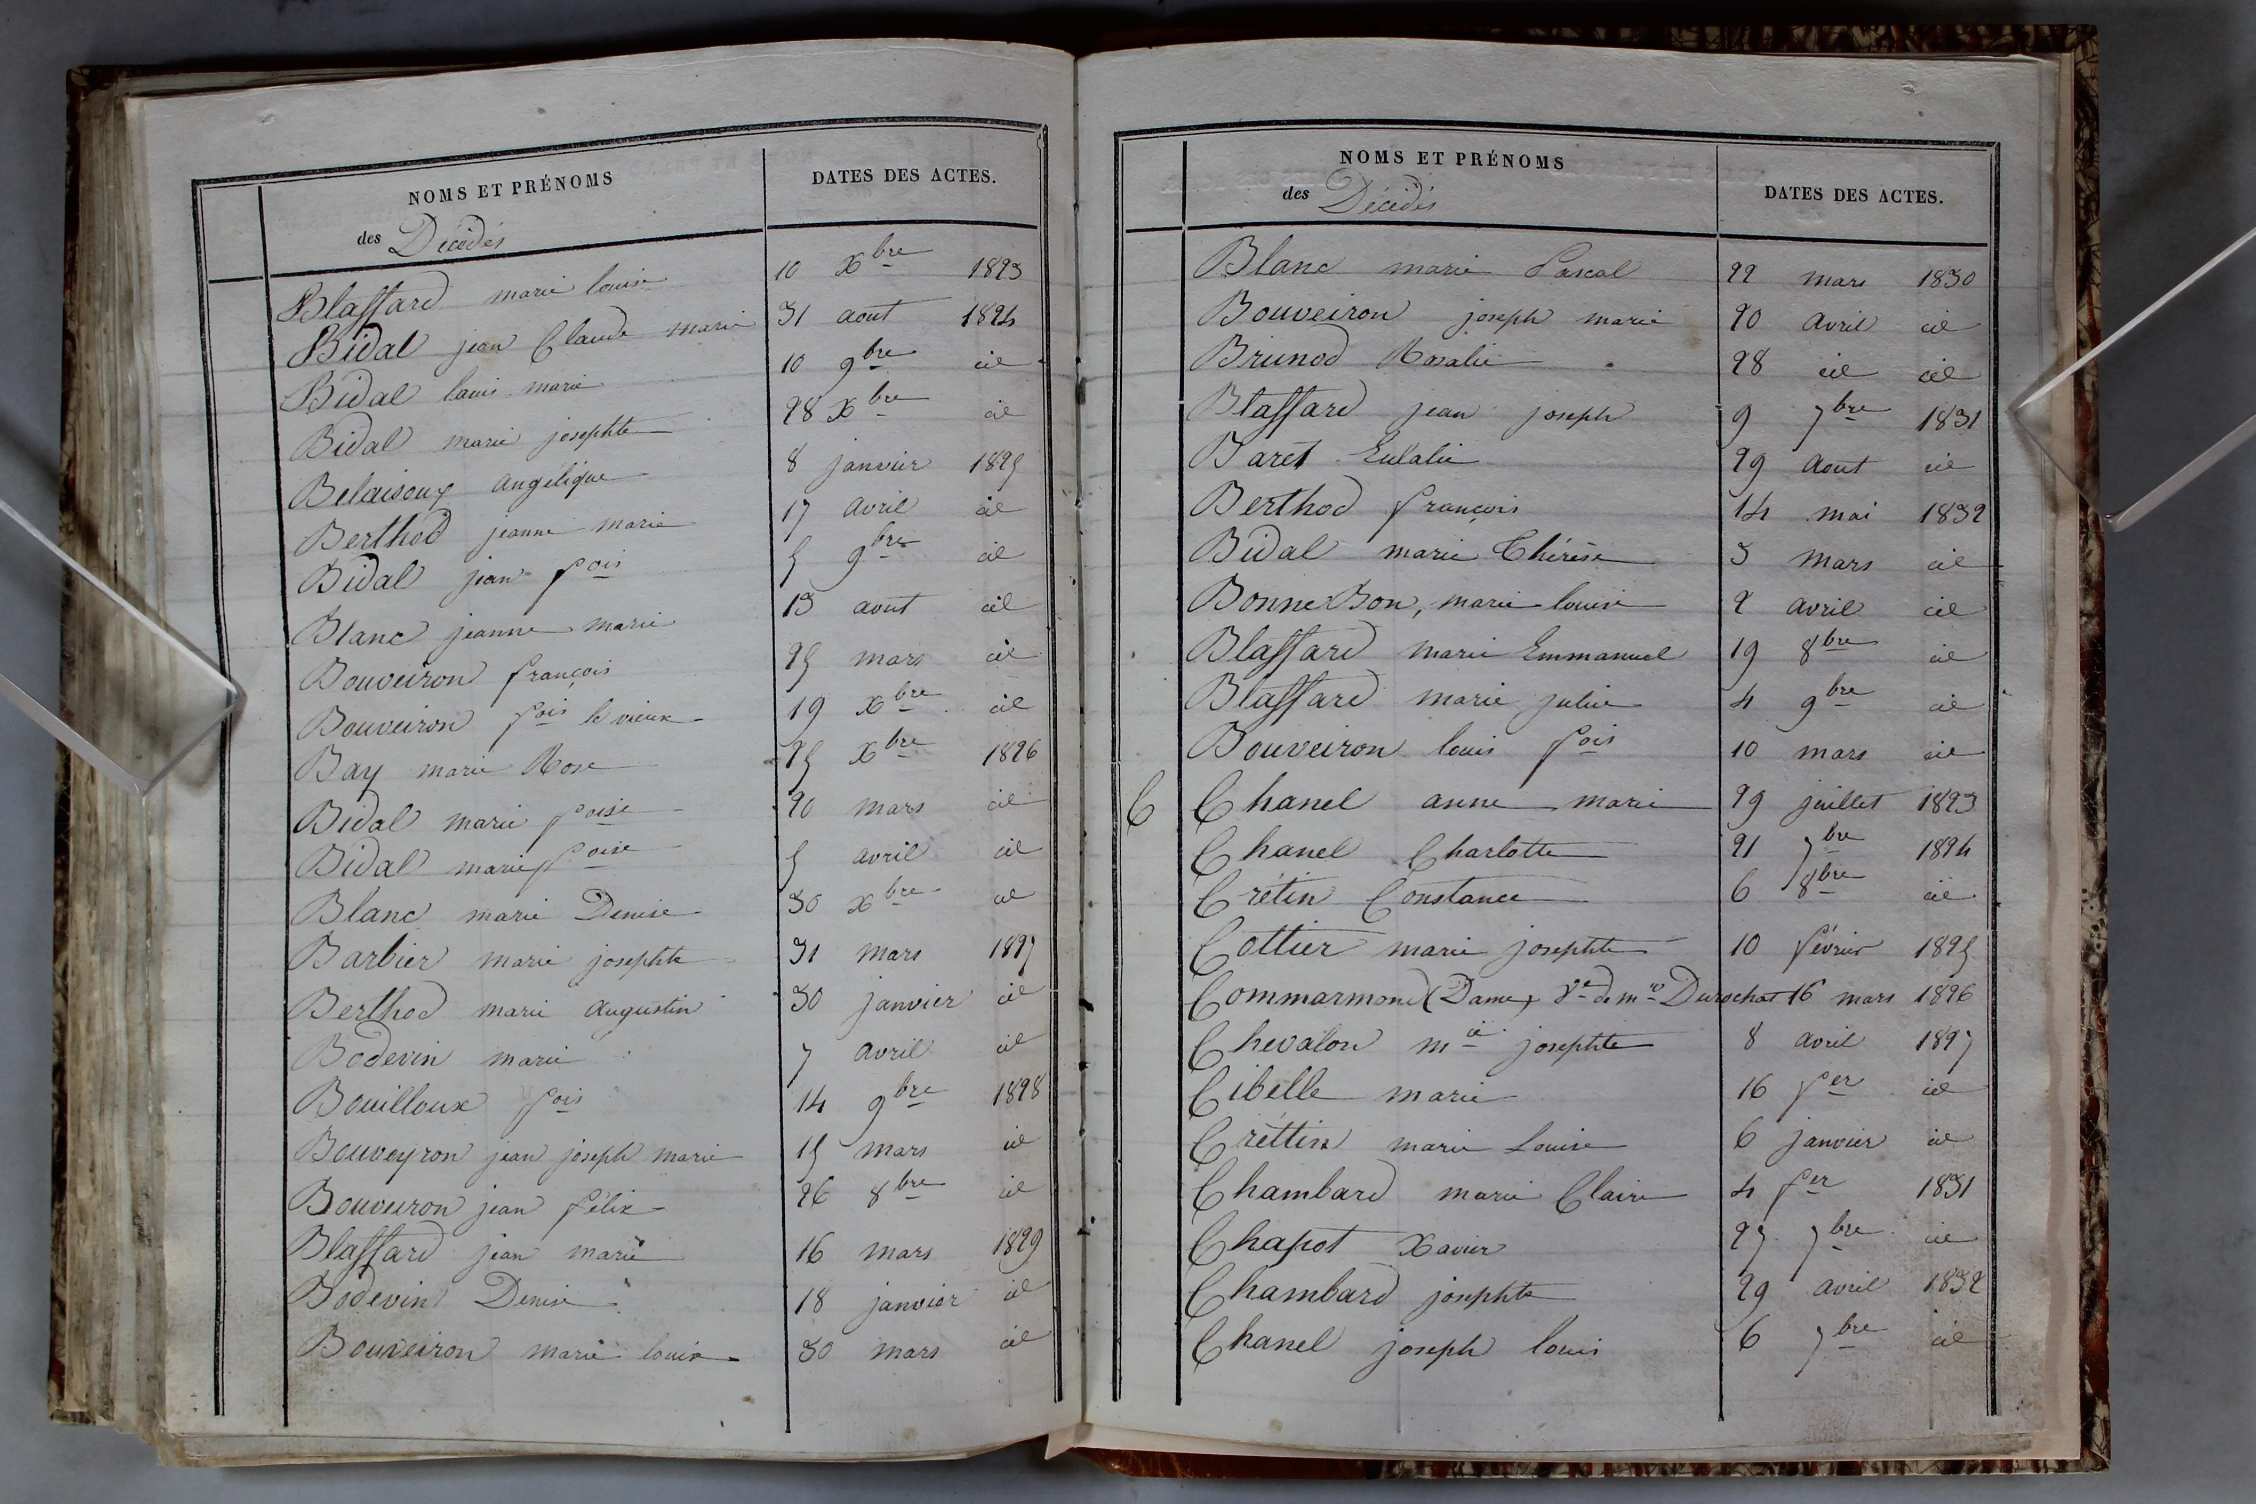 NOMS ET PRÉNOMS
des Décédés
DATES DES ACTES.
Blaffard marie louise 10 Xbre 1823
Bidal jean Claude marie 31 aout 1824
Bidal louis marie 10 9bre id
Bidal marie josephte 28 Xbre id
Belaisoux angélique 8 janvier 1825
Berthod jeanne marie 17 avril id
Bidal jean fois 5 9bre id
Blanc jeanne marie 13 aout id
Bouveiron françois 25 mars id
Bouveiron fois le vieux 19 Xbre id
Bay marie Rose 25 Xbre 1826
Bidal marie foise 20 mars id
Bidal marie foise 5 avril id
Blanc marie Denise 30 Xbre id
Barbier marie josephte 31 mars 1827
Berthod marie augustin 30 janvier id
Bodevin marie 7 avril id
Bouilloux fois 14 9bre 1828
Bouveyron jean joseph marie 15 mars id
Bouveiron jean félix 26 8bre id
Blaffard jean marie 16 mars 1829
Bodevin Denise 18 janvier id
Bouveiron marie louise 30 mars id
NOMS ET PRÉNOMS
des Décédés
DATES DES ACTES.
Blanc marie Pascal 22 mars 1830
Bouveiron joseph marie 20 avril id
Brunod Rosalie 28 id id
Blaffard jean joseph 9 7bre 1831
Baret Eulalie 29 aout id
Berthod françois 14 mai 1832
Bidal marie Thérèse 3 mars id
BonneBon, marie louise 2 avril id
Blaffard marie Emmanuel 19 8bre id
Blaffard marie julie 4 9bre id
Bouveiron louis fois 10 mars id
C Chanel anne marie 29 juillet 1823
Chanel Charlotte 21 7bre 1824
Crétin Constance 6 8bre id
Cottier marie josephte 10 février 1825
Commarmond (Dame) Ve de mr Durochat 16 mars 1826
Chevalon mie josephte 8 avril 1827
Cibelle marie 16 fer id
Crèttin marie Louise 6 janvier id
Chambard marie Claire 4 fer 1831
Chapot Xavier 27 7bre id
Chambard josephte 29 avril 1832
Chanel joseph louis 6 7bre id